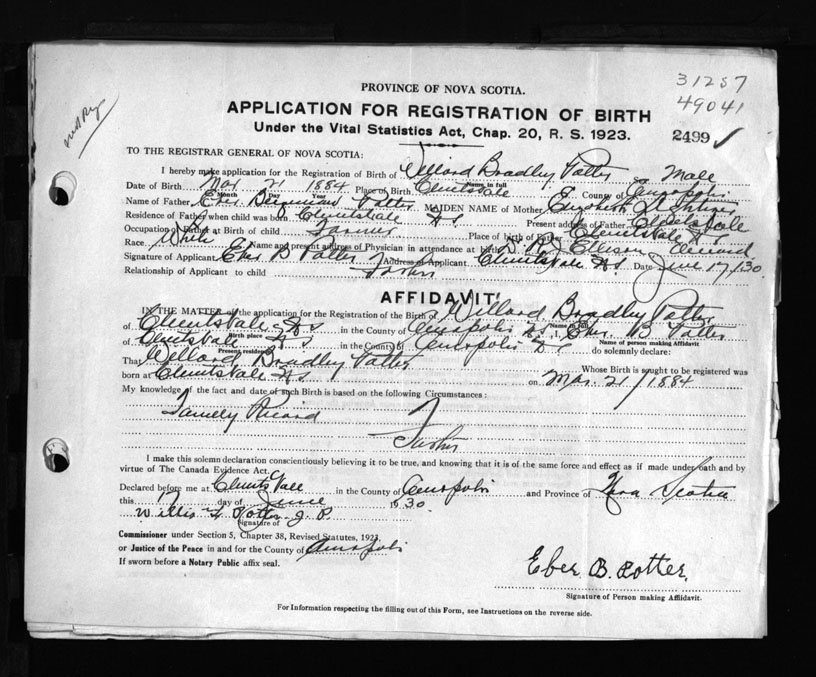 31257
49041
PROVINCE OF NOVA SCOTIA.
APPLICATION FOR REGISTRATION OF BIRTH
Under the Vital Statistics Act, Chap. 20, R. S. 1923.
2499 ✓
TO THE REGISTRAR GENERAL OF NOVA SCOTIA:
I hereby make application for the Registration of Birth of Willard Bradley Potter Male
Name in full
Date of Birth Mar 21 1884 Place of Birth Clmtsvale County of Annapolis
Month Day Year
Name of Father Eber Benjamin Potter MAIDEN NAME of Mother
Residence of Father when child was born Clmtsvale N S Present address of Father
Occupation of Father at Birth of child Farmer Place of birth of Father Clmtsvale N S
Race White Name and present address of Physician in attendance at birth Dr
Signature of Applicant Eber B Potter Address of Applicant Clmtsvale N S Date June 17/30
Relationship of Applicant to child Father
AFFIDAVIT
IN THE MATTER of the application for the Registration of the Birth of Willard Bradley Potter
Name in full
of Clmtsvale N S in the County of Annapolis N S I, Eber B Potter
Birth place Name of person making Affidavit
of Clmtsvale N S in the County of Annapolis N S do solemnly declare:
Present residence
That Willard Bradley Potter Whose Birth is sought to be registered was
born at Clmtsvale N S on Mar. 21/1884
My knowledge of the fact and date of such Birth is based on the following Circumstances:
Family Record
Father
I make this solemn declaration conscientiously believing it to be true, and knowing that it is of the same force and effect as if made under oath and by
virtue of The Canada Evidence Act.
Declared before me at Clmtsvale in the County of Annapolis and Province of Nova Scotia
this 17 day of June 1930.
Willis Potter J. P.
Signature of
Commissioner under Section 5, Chapter 38, Revised Statutes, 1923,
or Justice of the Peace in and for the County of Annapolis
If sworn before a Notary Public affix seal.
Eber B. Potter.
Signature of Person making Affidavit.
For Information respecting the filling out of this Form, see Instructions on the reverse side.